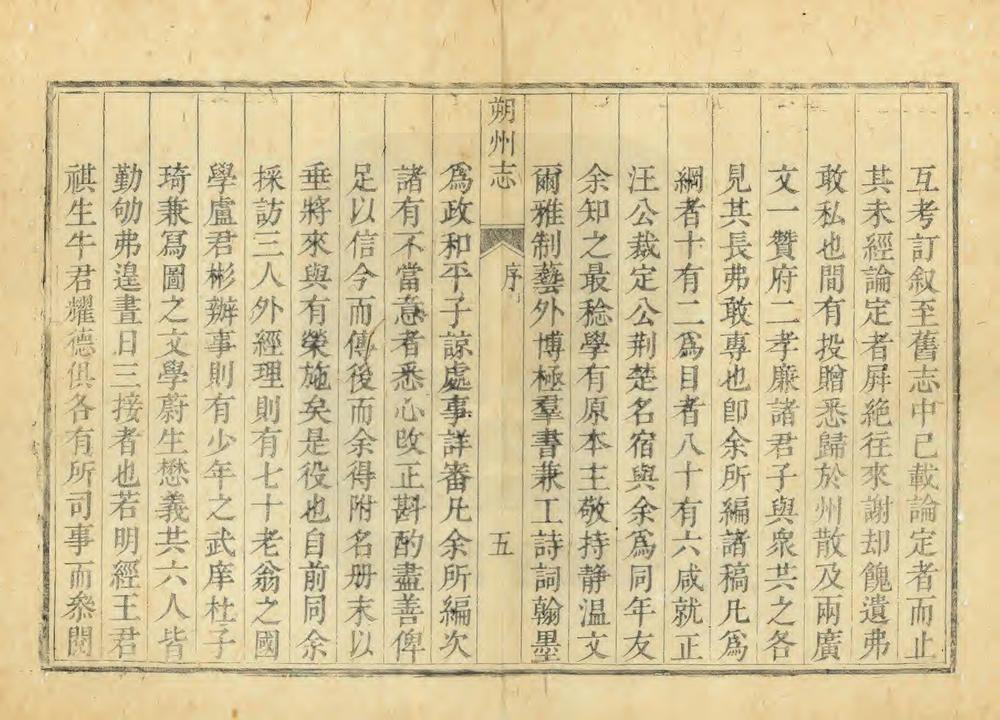 互考訂叙至舊志中已載論定者而止
其未經論定者屛絶往來謝却餽遺弗
敢私也間有投贈悉歸於州散及兩廣
文一贊府二孝廉諸君子與衆共之各
見其長弗敢專也卽余所編諸稿凡爲
綱者十有二爲目者八十有六咸就正
汪公裁定公荆楚名宿與余爲同年友
余知之最稔學有原本主敬持静温文
爾雅制藝外博極羣書兼工詩詞翰墨
朔州志 序 五
爲政和平子諒處事詳審凡余所編次
諸有不當意者悉心改正斟酌盡善俾
足以信今而傳後而余得附名册末以
垂將來與有榮施矣是役也自前同余
採訪三人外經理則有七十老翁之國
學盧君彬辦事則有少年之武庠杜子
琦兼寫圖之文學蔚生懋義共六人皆
勤劬弗遑晝日三接者也若明經王君
祺生牛君耀德俱各有所司事而叅閱